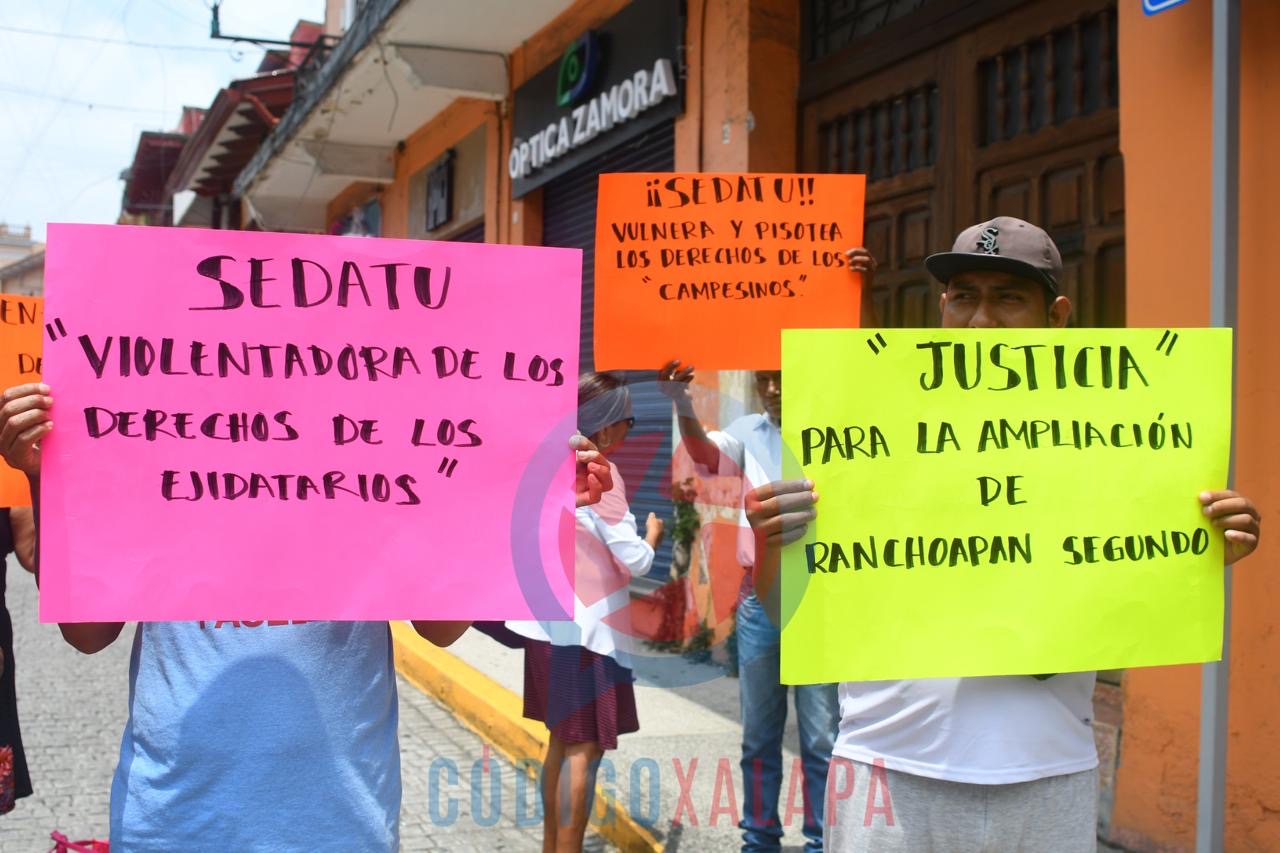 ÓPTICA ZAMORA
¡¡SEDATU!!
VULNERA Y PISOTEA
LOS DERECHOS DE LOS
"CAMPESINOS."
SEDATU
"VIOLENTADORA DE LOS
DERECHOS DE LOS
EJIDATARIOS"
"JUSTICIA"
PARA LA AMPLIACIÓN
DE
RANCHOAPAN SEGUNDO
EN-
DE
CÓDIGOXALAPA